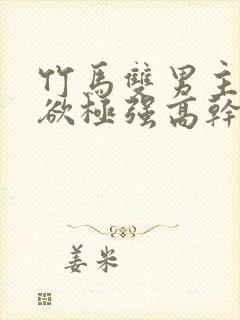 竹馬雙男主
欲極强高幹
姜米